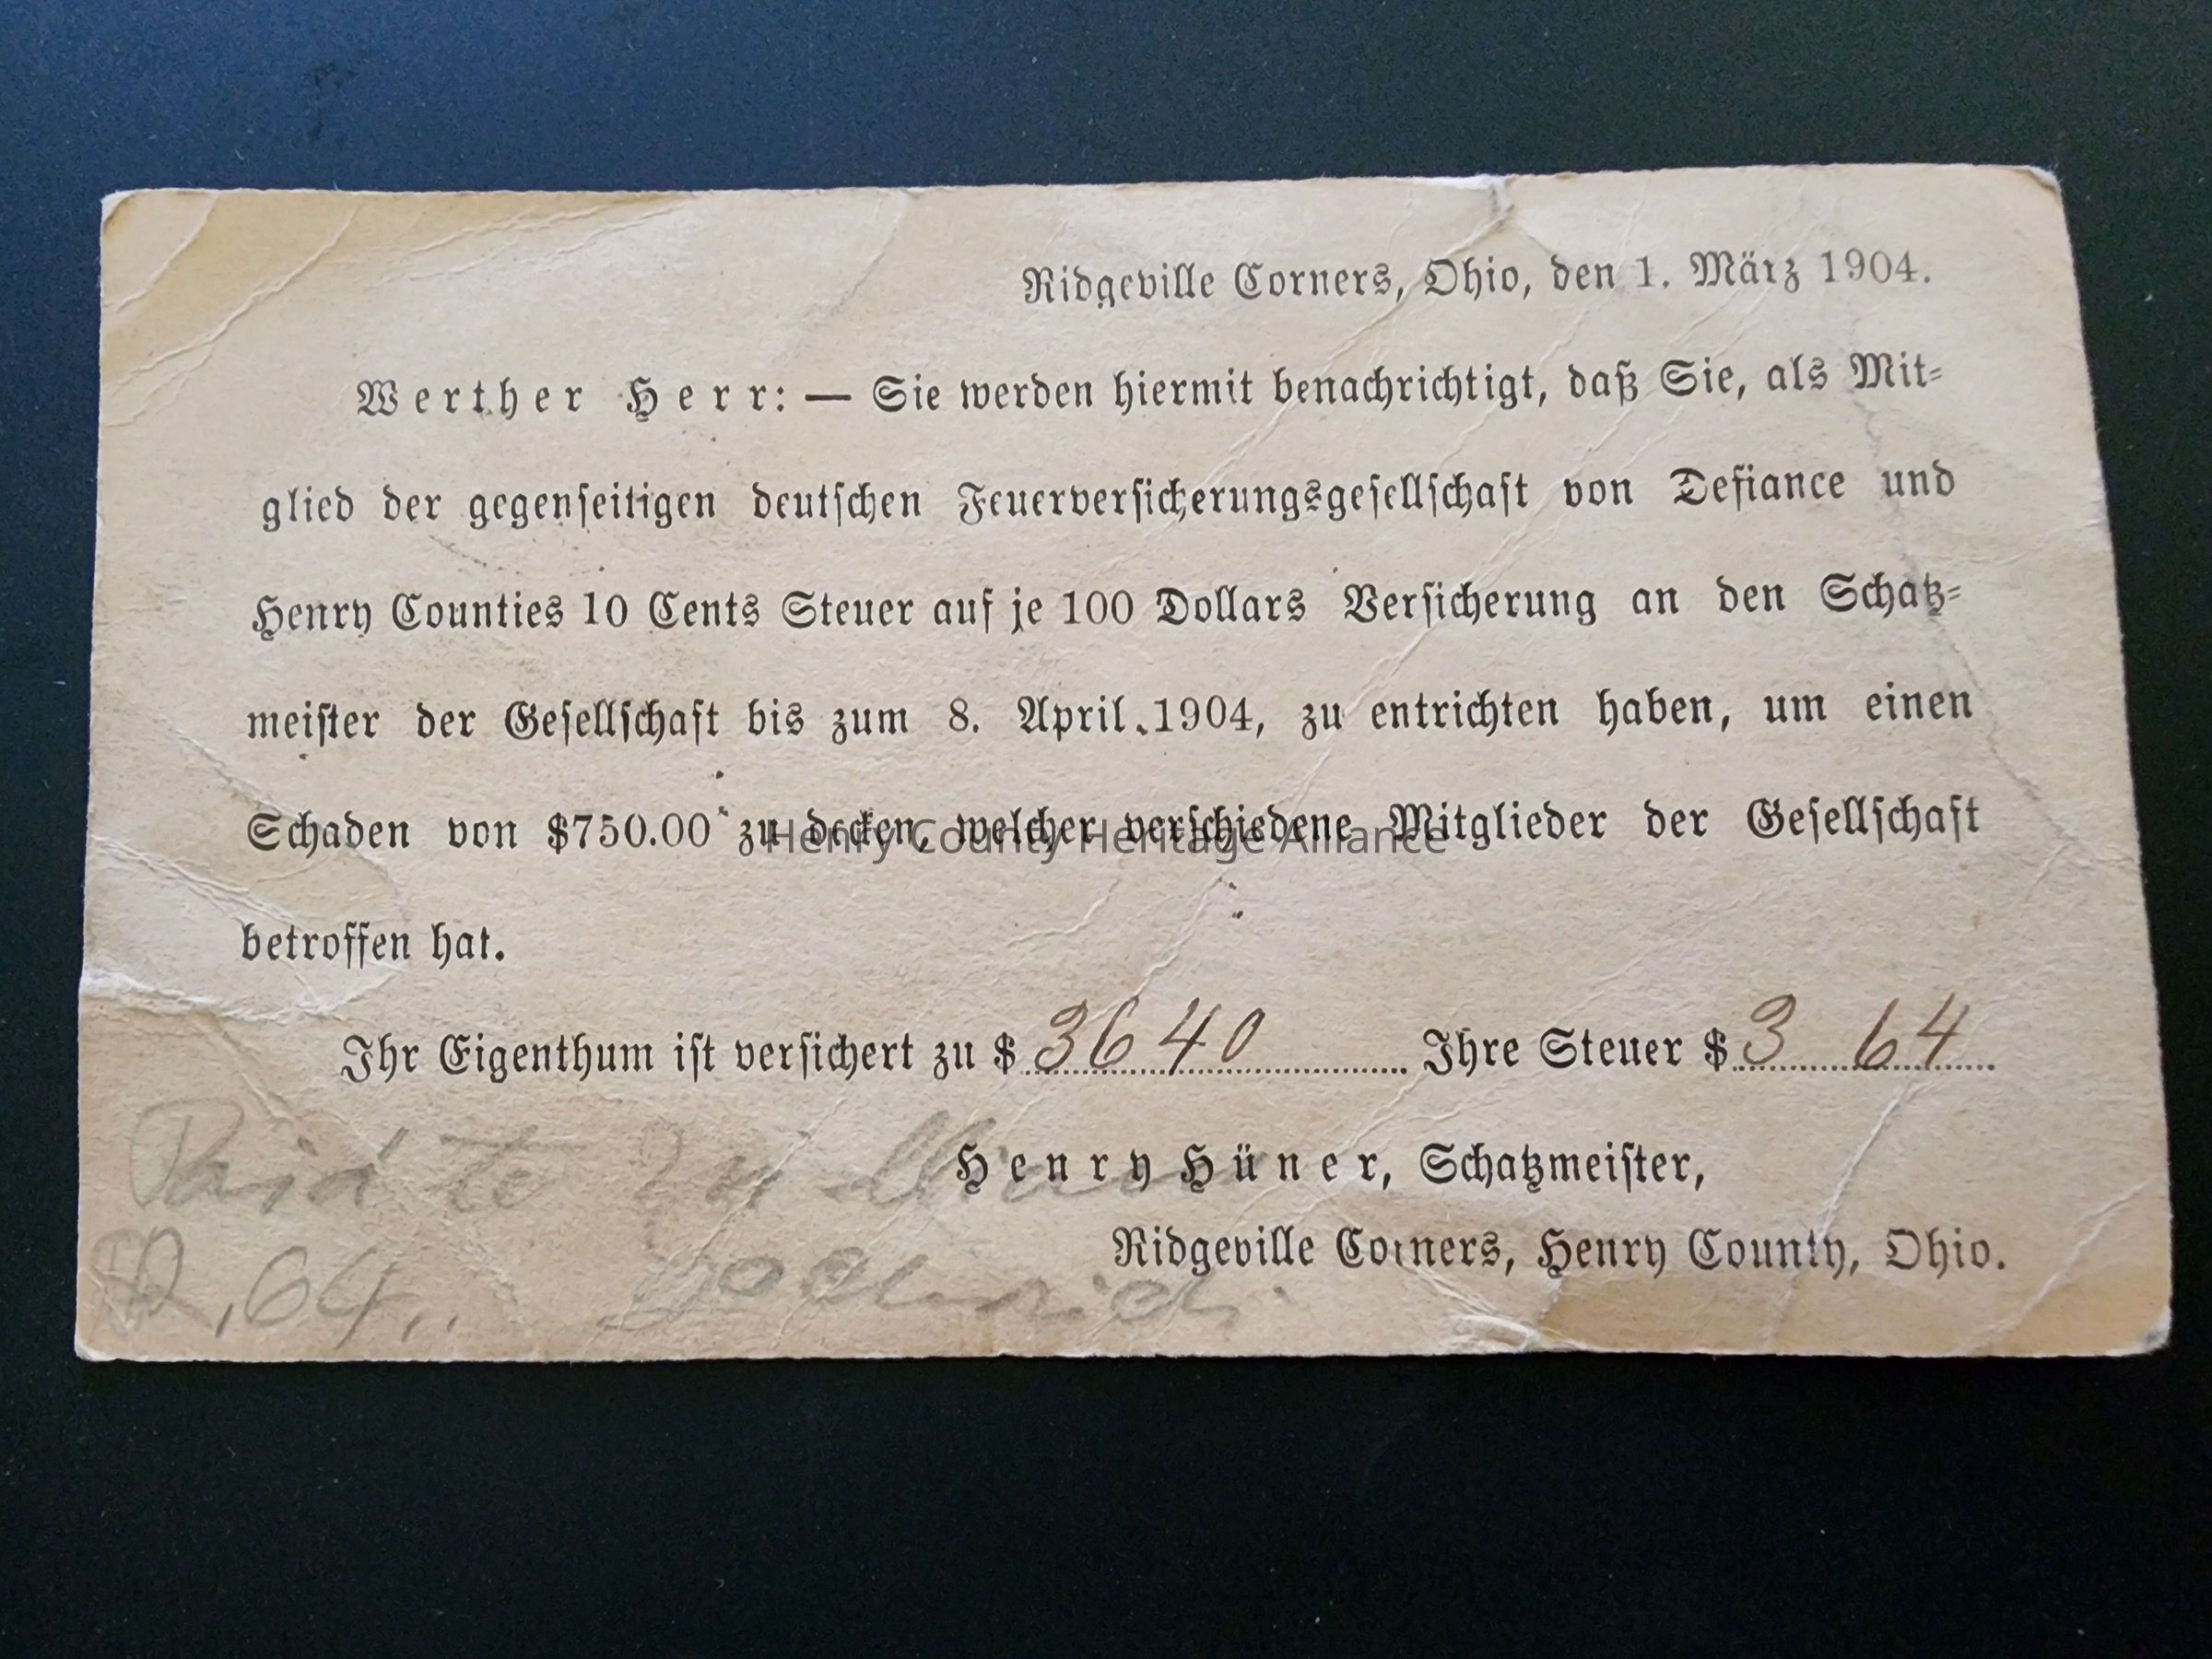 Ridgeville Corners, Ohio, den 1. März 1904.
Werther Herr: — Sie werden hiermit benachrichtigt, daß Sie, als Mit-
glied der gegenseitigen deutschen Feuerversicherungsgesellschaft von Defiance und
Henry Counties 10 Cents Steuer auf je 100 Dollars Versicherung an den Schatz-
meister der Gesellschaft bis zum 8. April 1904, zu entrichten haben, um einen
Schaden von $750.00 zu decken, welcher verschiedene Mitglieder der Gesellschaft
Henry County Heritage Alliance
betroffen hat.
Ihr Eigenthum ist versichert zu $ 3640 Ihre Steuer $ 3 64
Paid to
Henry Hüner, Schatzmeister,
Ridgeville Corners, Henry County, Ohio.
,64